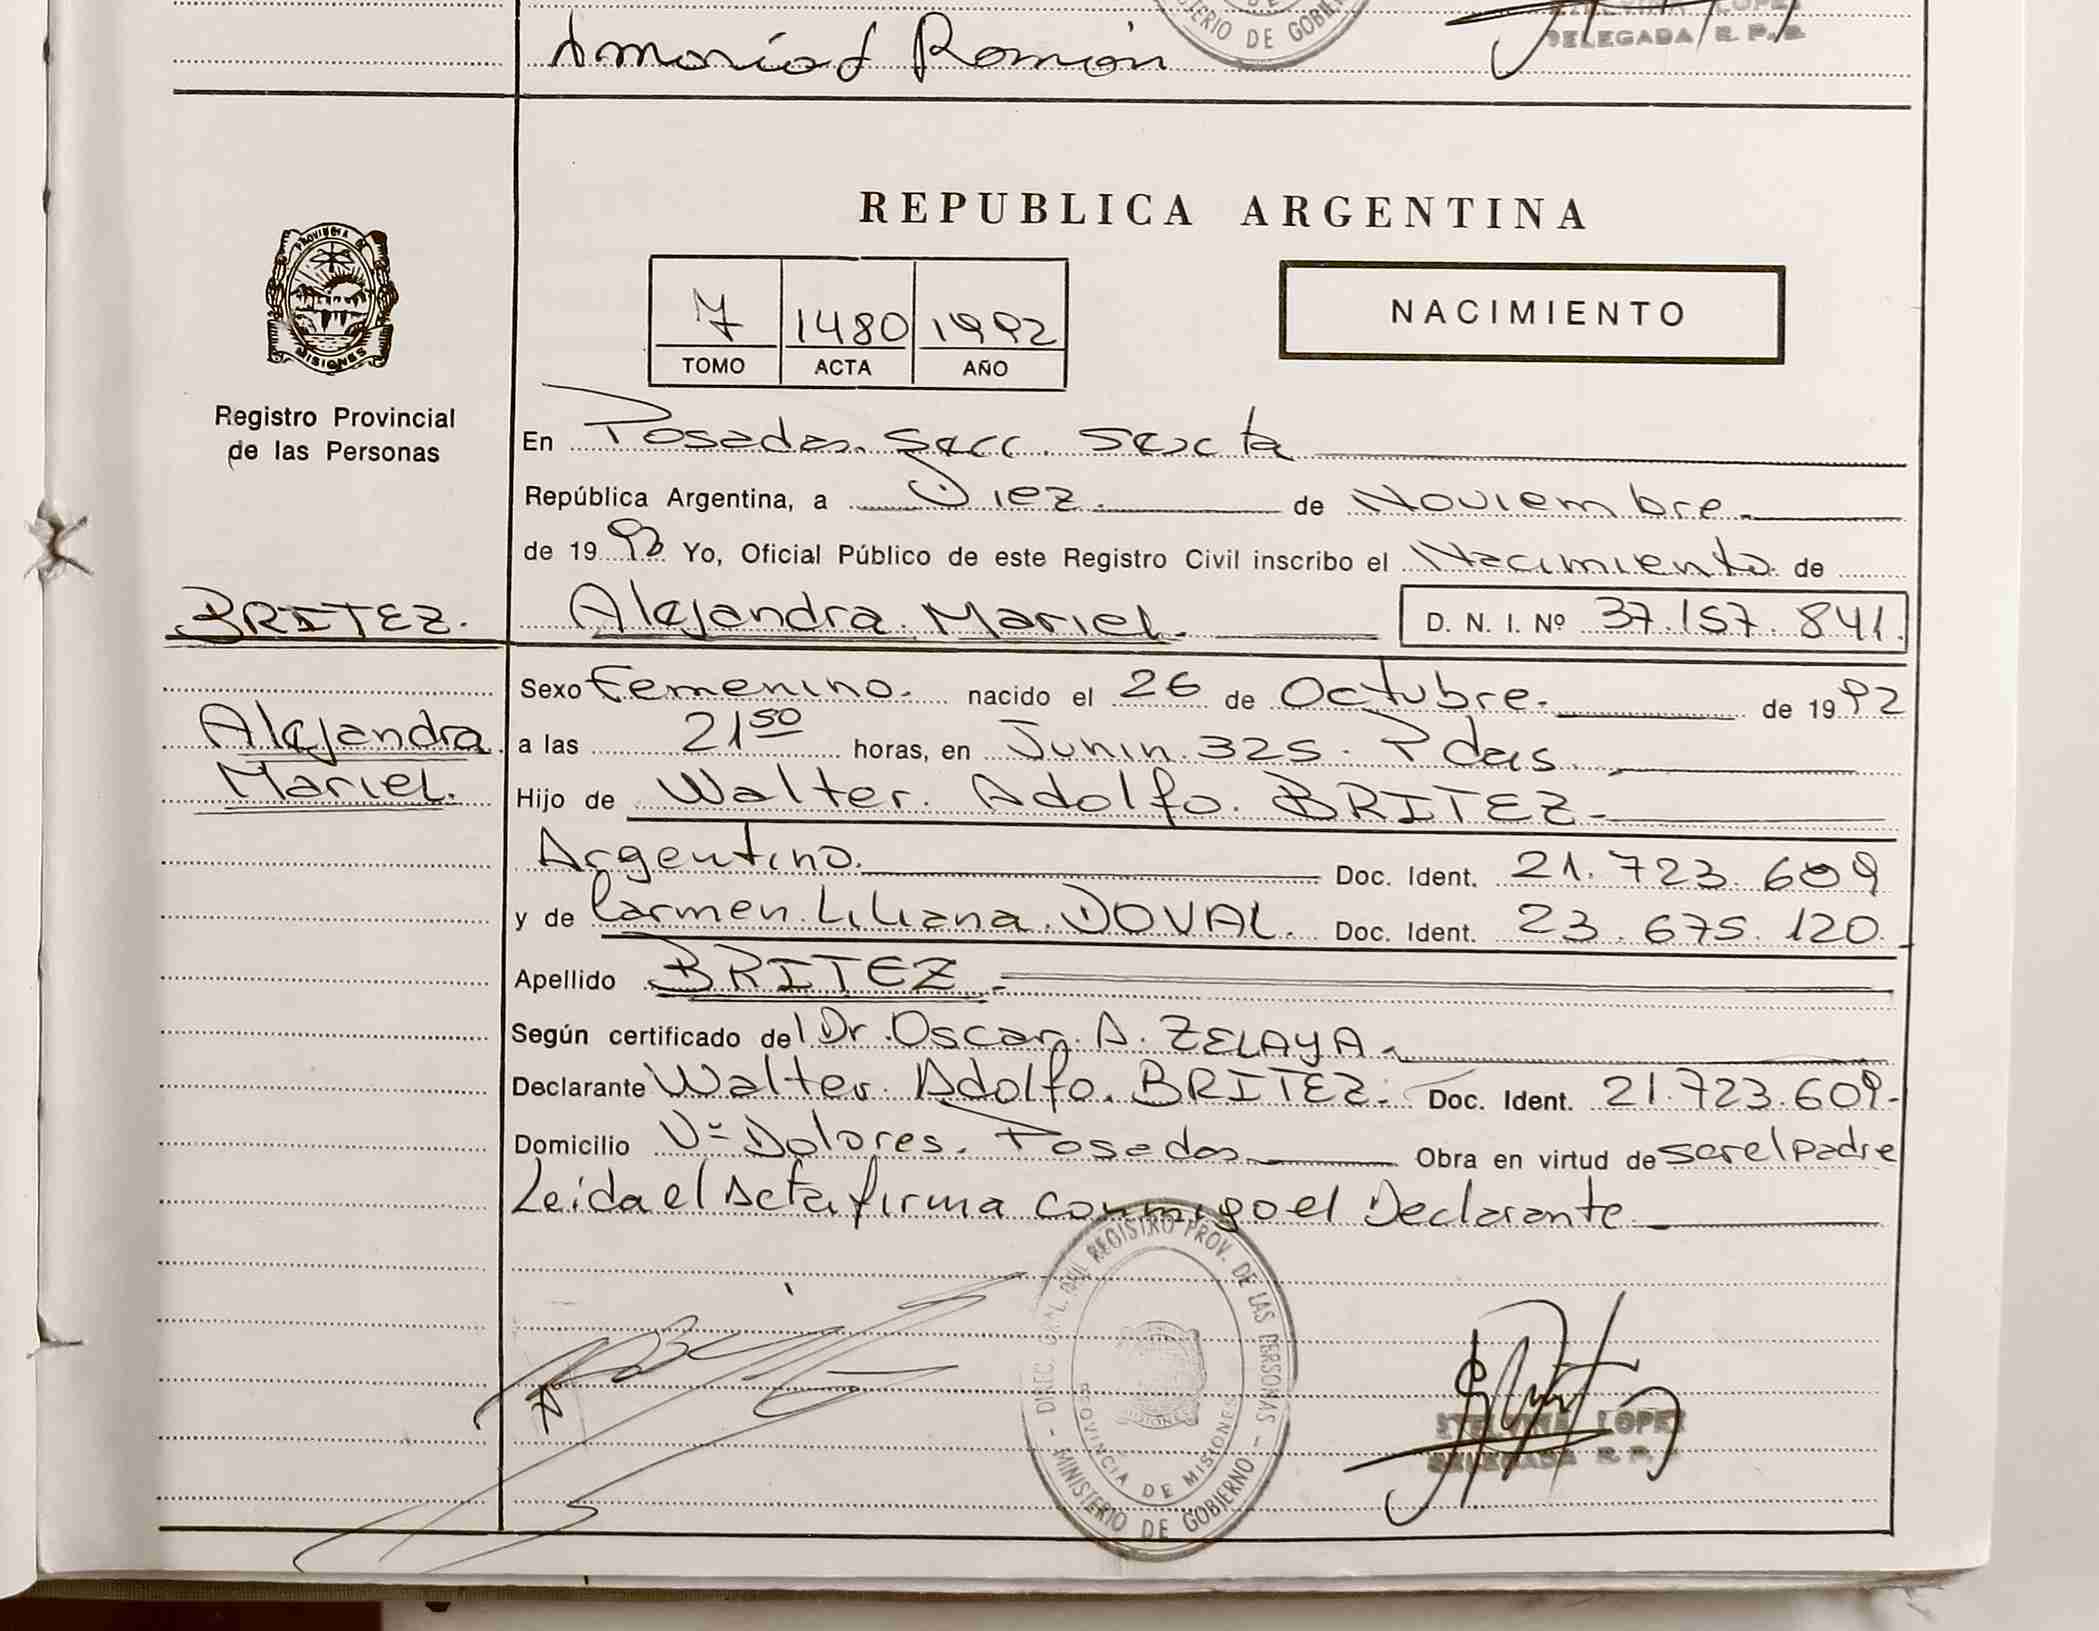 MINISTERIO DE GOBIERNO
LOPEZ
DELEGADA R. P. P.
Ramón
PROVINCIA DE
MISIONES
Registro Provincial
de las Personas
REPUBLICA ARGENTINA
7 1480 1992
TOMO ACTA AÑO
NACIMIENTO
En Posadas. Secc. Sexta
República Argentina, a Diez. de Noviembre.
de 1992 Yo, Oficial Público de este Registro Civil inscribo el Nacimiento de
BRITEZ. Alejandra. Mariel. D. N. I. Nº 37.157.841.
Sexo Femenino. nacido el 26 de Octubre. de 1992
Alejandra a las 21⁵⁰ horas, en Junin. 325. Pdas.
Mariel. Hijo de Walter. Adolfo. BRITEZ.
Argentino. Doc. Ident. 21.723.609
y de Carmen. Liliana. DOVAL. Doc. Ident. 23.675.120.
Apellido BRITEZ.
Según certificado del Dr. Oscar. A. ZELAYA.
Declarante Walter. Adolfo. BRITEZ. Doc. Ident. 21.723.609.
Domicilio Vª Dolores. Posadas Obra en virtud de ser el padre
Leida el Acta firma conmigo el Declarante
DIREC. GRAL. REGISTRO PROV. DE LAS PERSONAS
PROVINCIA DE MISIONES
MINISTERIO DE GOBIERNO
LOPEZ
DELEGADA R. P.